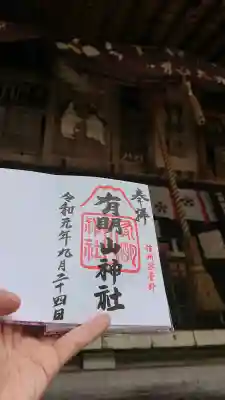 奉拝
信州安曇郡
有明山神社
令和元年九月二十四日